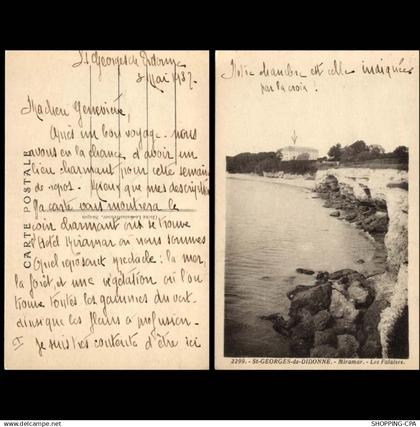 St Georges de Didonne
8 Mai 1937.
Ma chère Geneviève,
Après un bon voyage nous
avons eu la chance d'avoir un
lieu charmant pour cette semaine
de repos. Mieux que mes descriptions
la carte vous montrera le
coin charmant où se trouve
l'Hôtel Miramar où nous sommes
Quel reposant spectacle : la mer,
la forêt et une végétation où l'on
trouve toutes les gammes du vert
ainsi que les fleurs à profusion.
Je suis très contente d'être ici
CARTE POSTALE
Notre chambre est celle indiquée
par la croix !
2299. - St-GEORGES-de-DIDONNE. - Miramar. - Les Falaises.
www.shopping-cpa.com
© SHOPPING-CPA